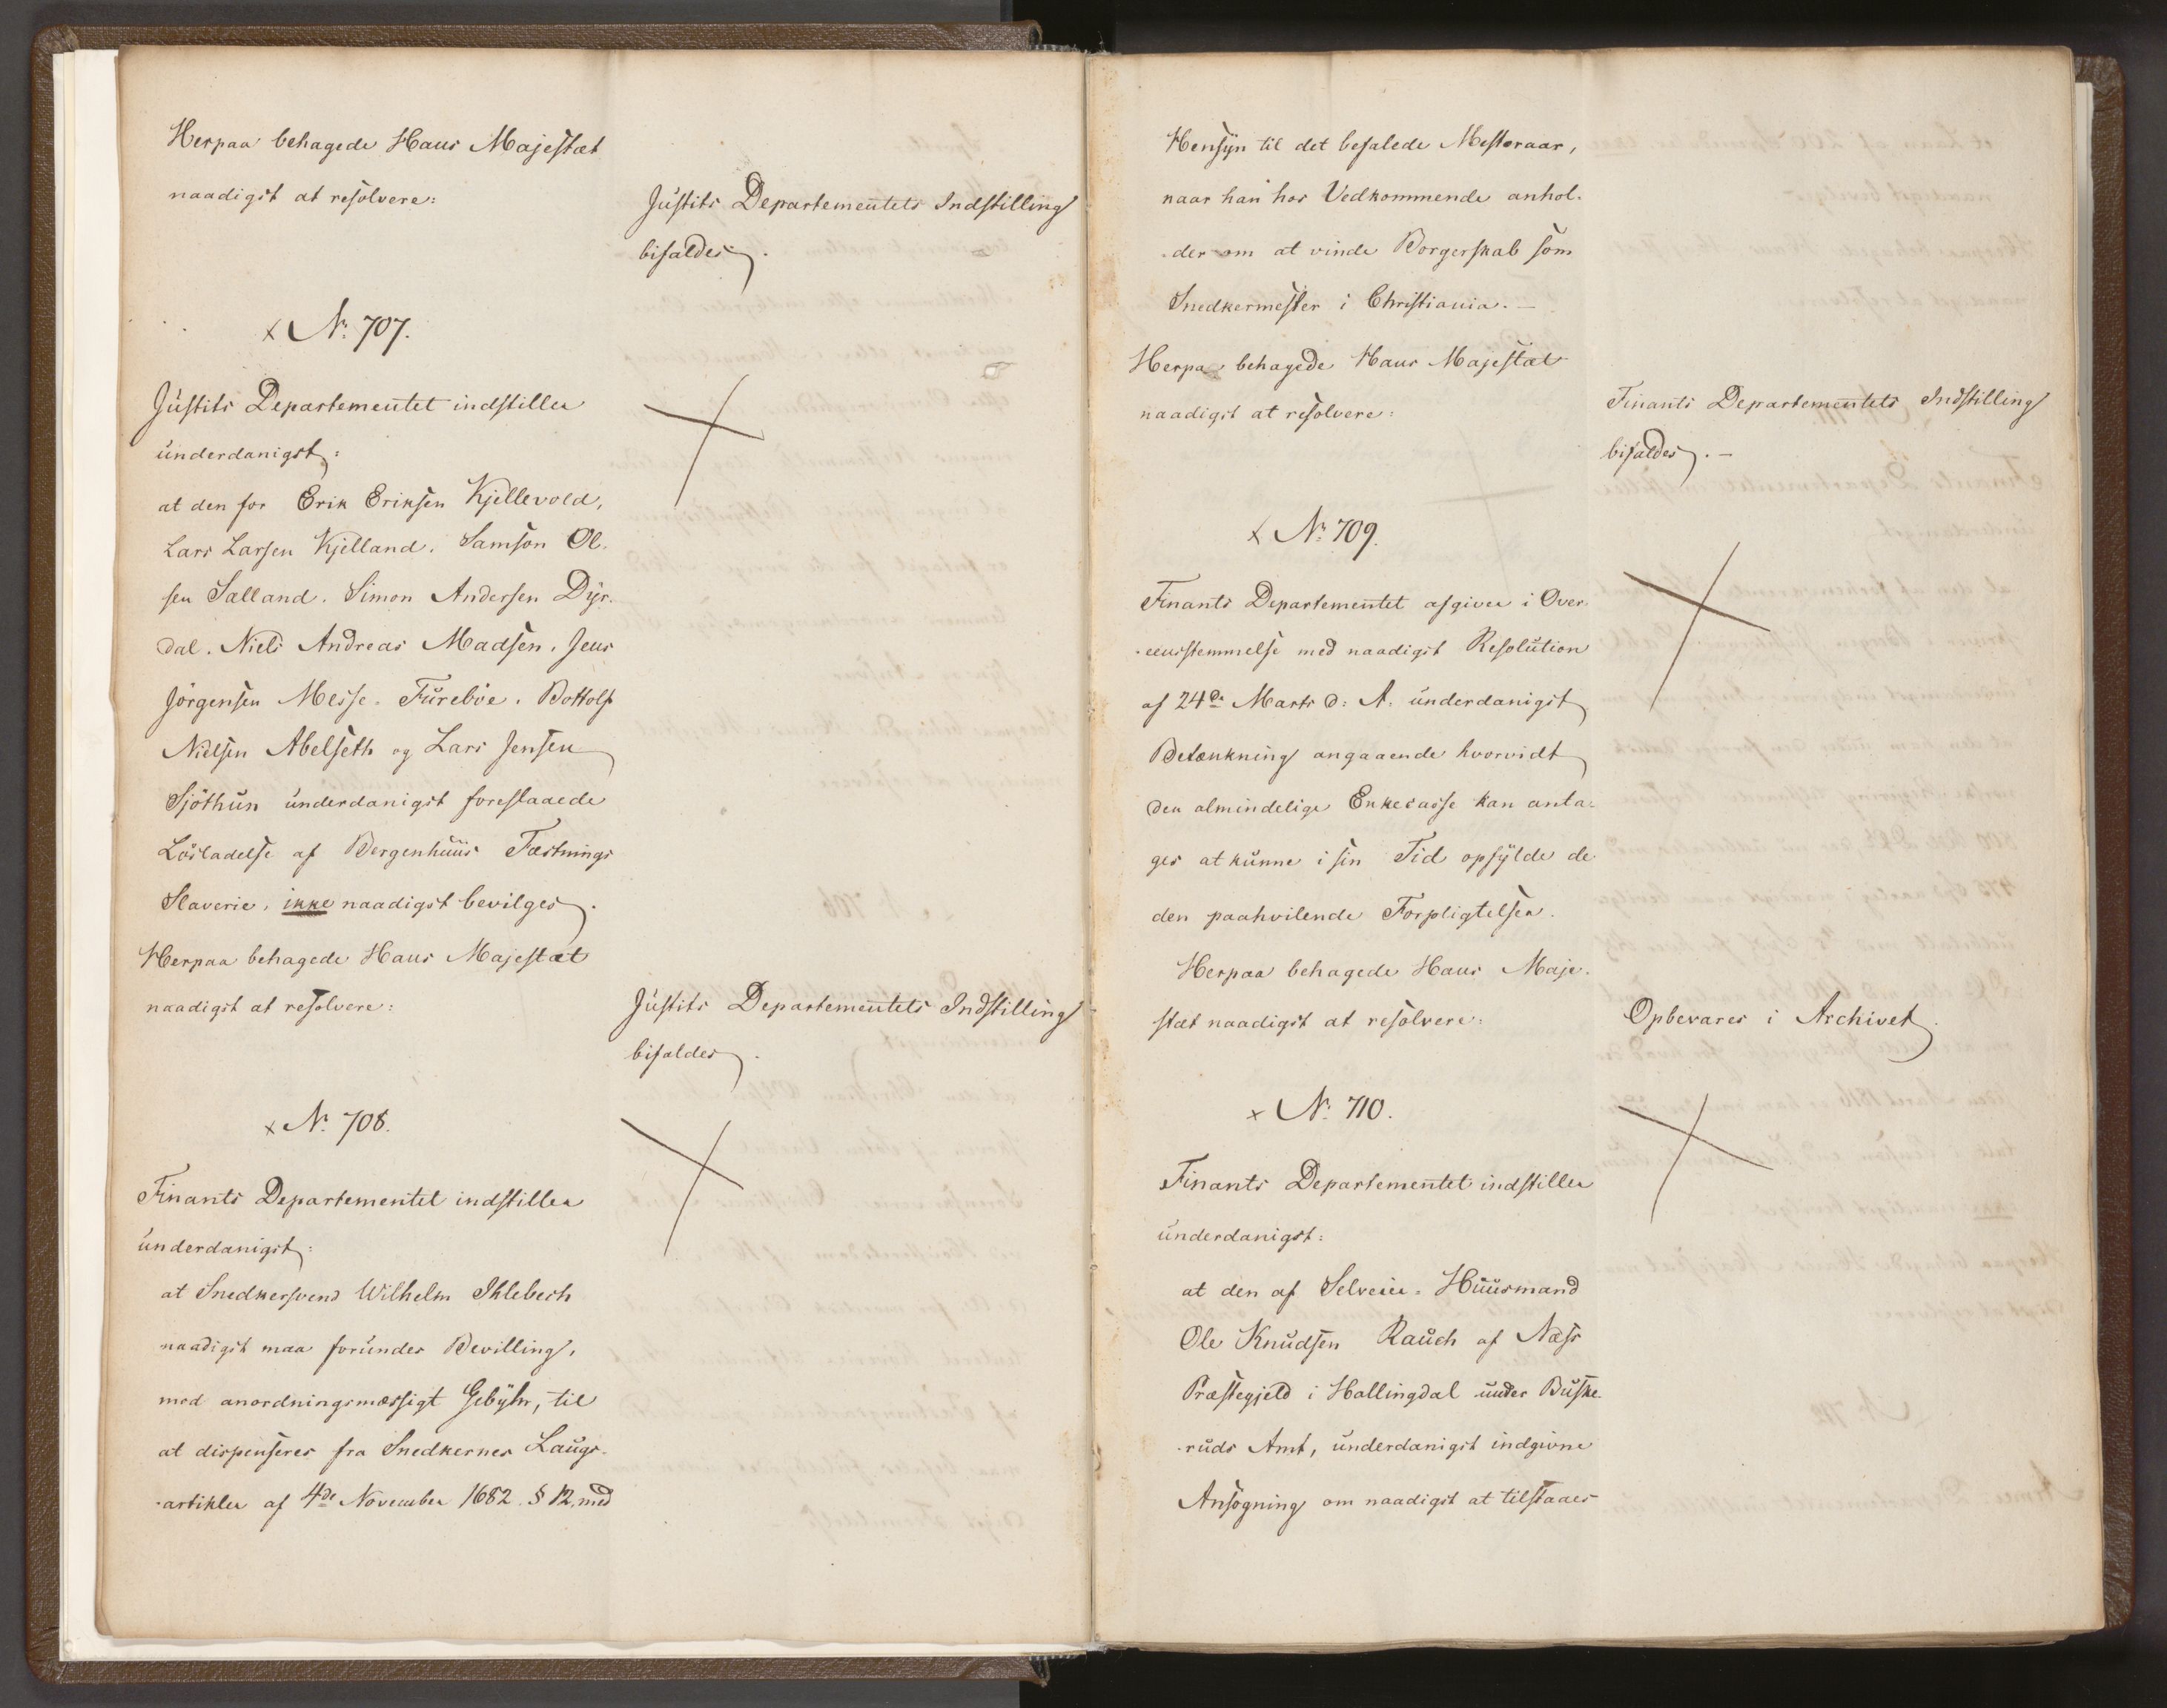 Herpaa behagede Hans Majestæt
naadigst at resolvere:
Justits Departementets Indstilling
bifaldes.
x No 707.
Justits Departementet indstiller
underdanigst:
at den for Erik Eriksen Kjellevold,
Lars Larsen Kjelland, Samson Ol-
sen Salland, Simon Andersen Dyr-
dal, Niels Andreas Madsen, Jens
Jörgensen Messe-Furebøe, Bottolf
Nielsen Abelseth og Lars Jensen
Sjöthun underdanigst foreslaaede
Lösladelse af Bergenhuus Fæstnings
Slaverie, ikke naadigst bevilges.
Herpaa behagede Hans Majestæt
naadigst at resolvere:
Justits Departementets Indstilling
bifaldes.
x No 708.
Finants Departementet indstiller
underdanigst:
at Snedkersvend Wilhelm Ihlebech
naadigst maa forundes Bevilling,
med anordningsmæssigt Gebyhr, til
at dispenseres fra Snedkernes Laugs-
-artikler af 4de November 1682 § 12, med
Hensyn til det befalede Mesteraar,
naar han hos Vedkommende anhol-
-der om at vinde Borgerskab som
Snedkermester i Christiania.—
Herpaa behagede Hans Majestæt
naadigst at resolvere:
Finants Departementets Indstilling
bifaldes.—
x No 709.
Finants Departementet afgiver i Over-
-eensstemmelse med naadigst Resolution
af 24de Marts d: A: underdanigst
Betænkning angaaende hvorvidt
den almindelige Enkecasse kan anta-
ges at kunne i sin Tid opfylde de
den paahvilende Forpligtelser.
Herpaa behagede Hans Maje-
stæt naadigst at resolvere:
Opbevares i Archivet.
x No 710.
Finants Departementet indstiller
underdanigst:
at den af Selveier-Huusmand
Ole Knudsen Rauch af Næss
Præstegjeld i Hallingdal under Buske-
-ruds Amt, underdanigst indgivne
Ansøgning om naadigst at tilstaaes